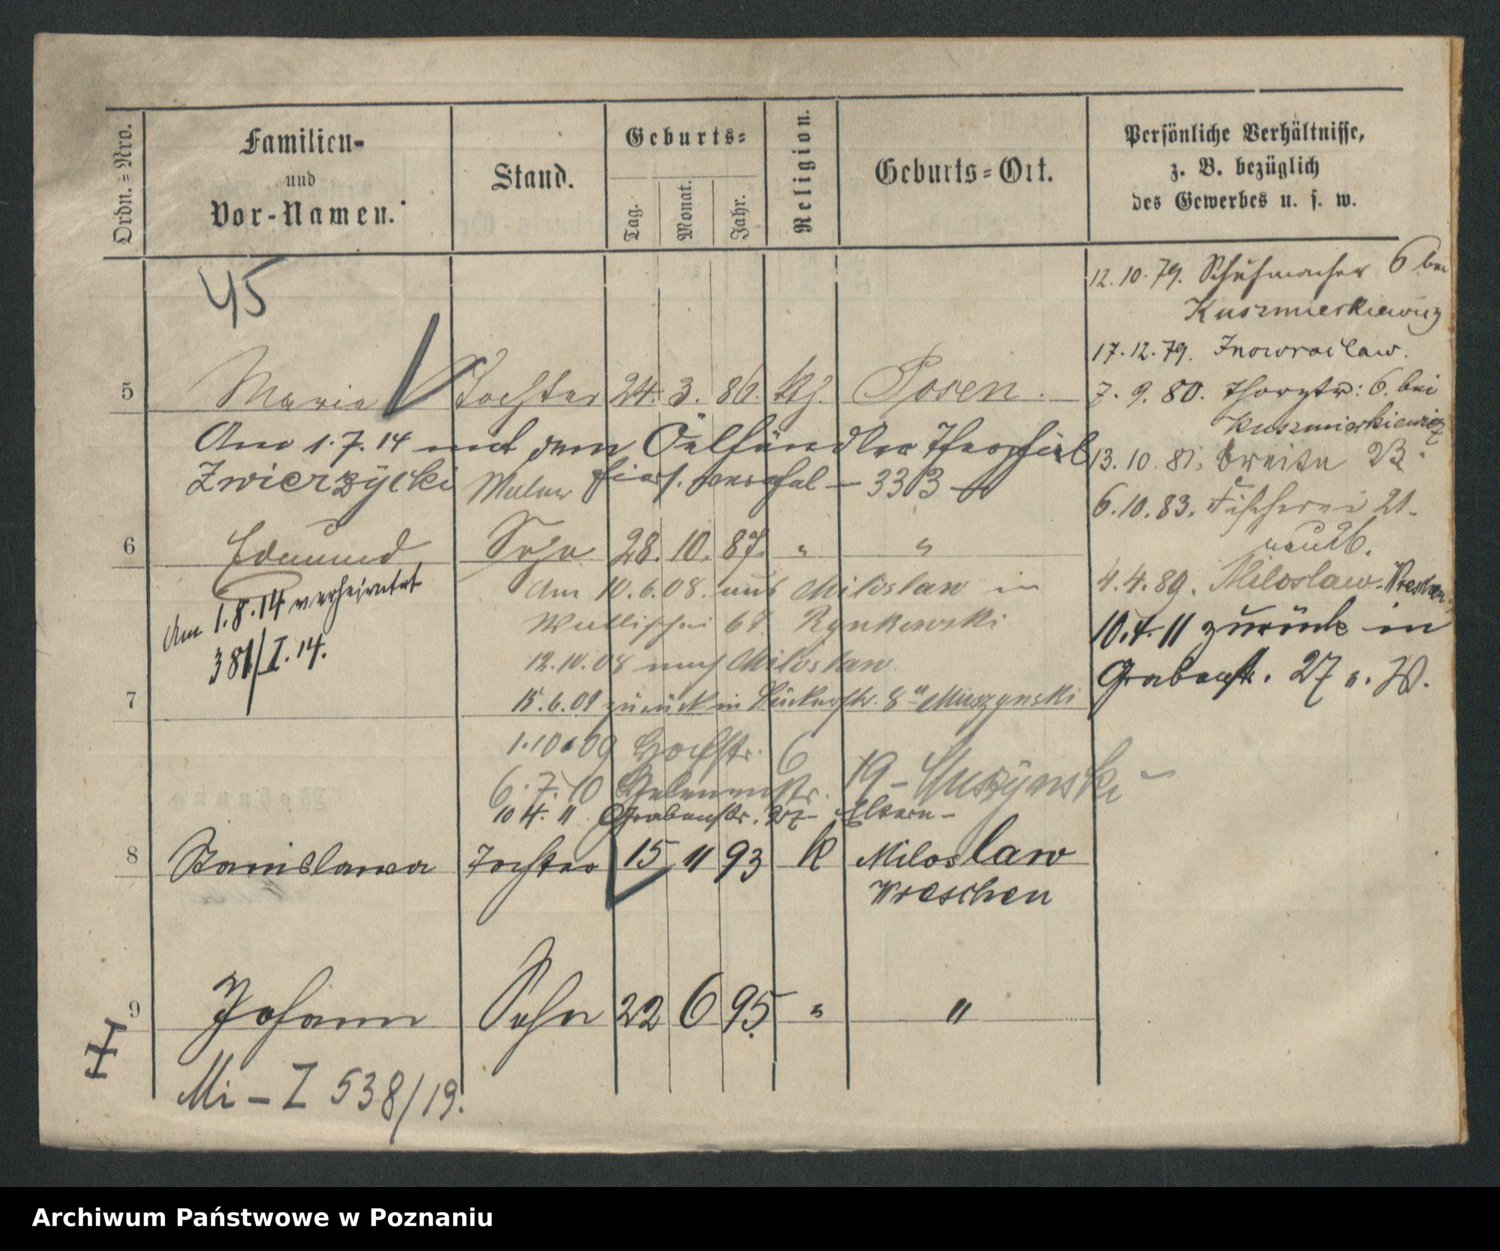 Ordn.=Nro.
Familien-
und
Vor-Namen.
Stand.
Geburts=
Tag.
Monat.
Jahr.
Religion.
Geburts=Ort.
Persönliche Verhältnisse,
z. B. bezüglich
des Gewerbes u. s. w.
45
12.10.79. Schuhmacher 6 bei
Kuszmierkiewicz
17.12.79. Inowraclaw.
5 Marie Tochter 24. 3. 86. kth. Posen.
7.9.80. 6. bei
Kuszmierkiewicz
Am 1.7.14 mit dem Theophil
Zwierzycki Maler hier 3313
13.10.81. Breite 23.
6.10.83. Fischerei 21.
6 Edmund Sohn 28. 10. 87. " "
Am 1.8.14 verheiratet
381/I.14.
Am 10.6.08. aus Miloslaw in
Wallischei 67. Rynkowski
12.10.08 nach Miloslaw
4.4.89. Miloslaw-Wreschen
10.4.11 zurück in
Grabenstr. 27 b. W.
7
15.6.09 zurück in 8 Muszynski
1.10.09 6
6.7.10 19 - Muszynski
10 4. 11 Grabenstr. 27 - Eltern -
8 Stanislawa Tochter 15 11 93 k Miloslaw
Wreschen
9 Johann Sohn 22 6 95. " "
Mi - Z 538/19.
Archiwum Państwowe w Poznaniu